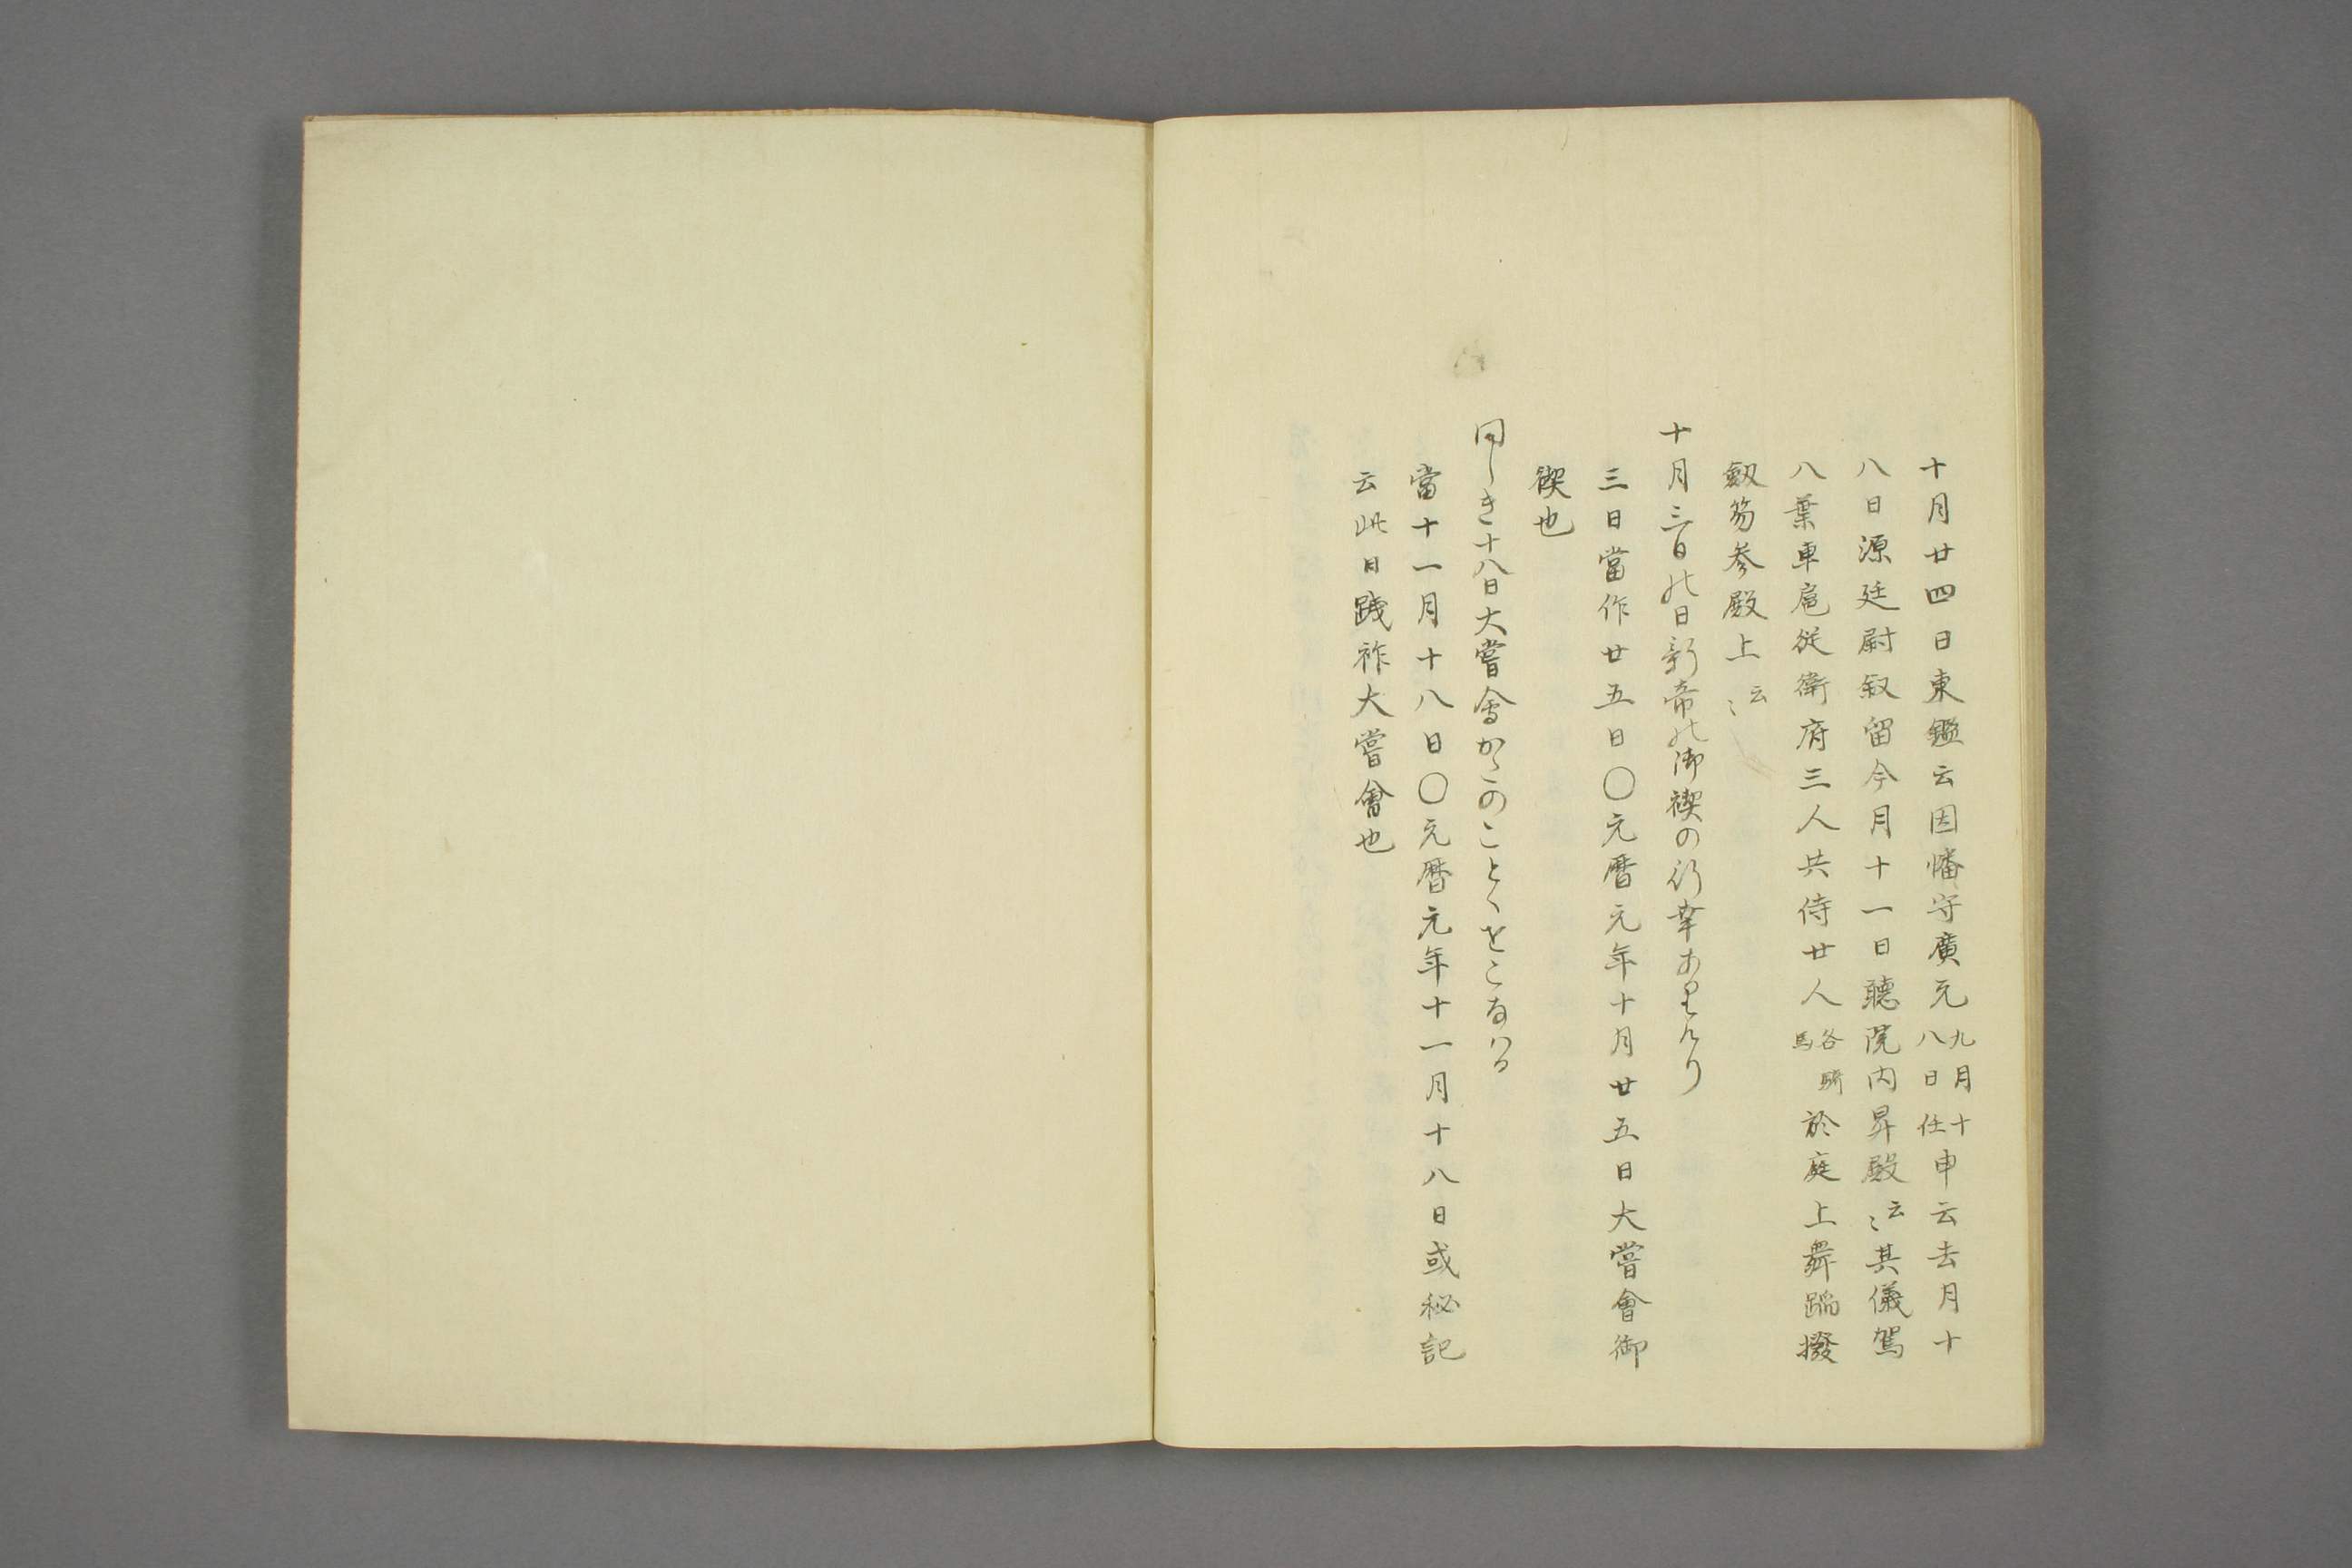 十月廿四日東鑑云因幡守廣元九月十八日任申云去月十
八日源廷尉叙留今月十一日聽院内昇殿云〻其儀駕
八葉車扈従衛府三人共侍廿人各騎馬於庭上舞蹈撥
劔笏参殿上云〻
十月三日の日新帝の御禊の行幸ありけり
三日當作廿五日〇元暦元年十月廿五日大嘗會御
禊也
同しき十八日大嘗會かたのことくをこなはる
當十一月十八日〇元暦元年十一月十八日或秘記
云此日践祚大嘗會也